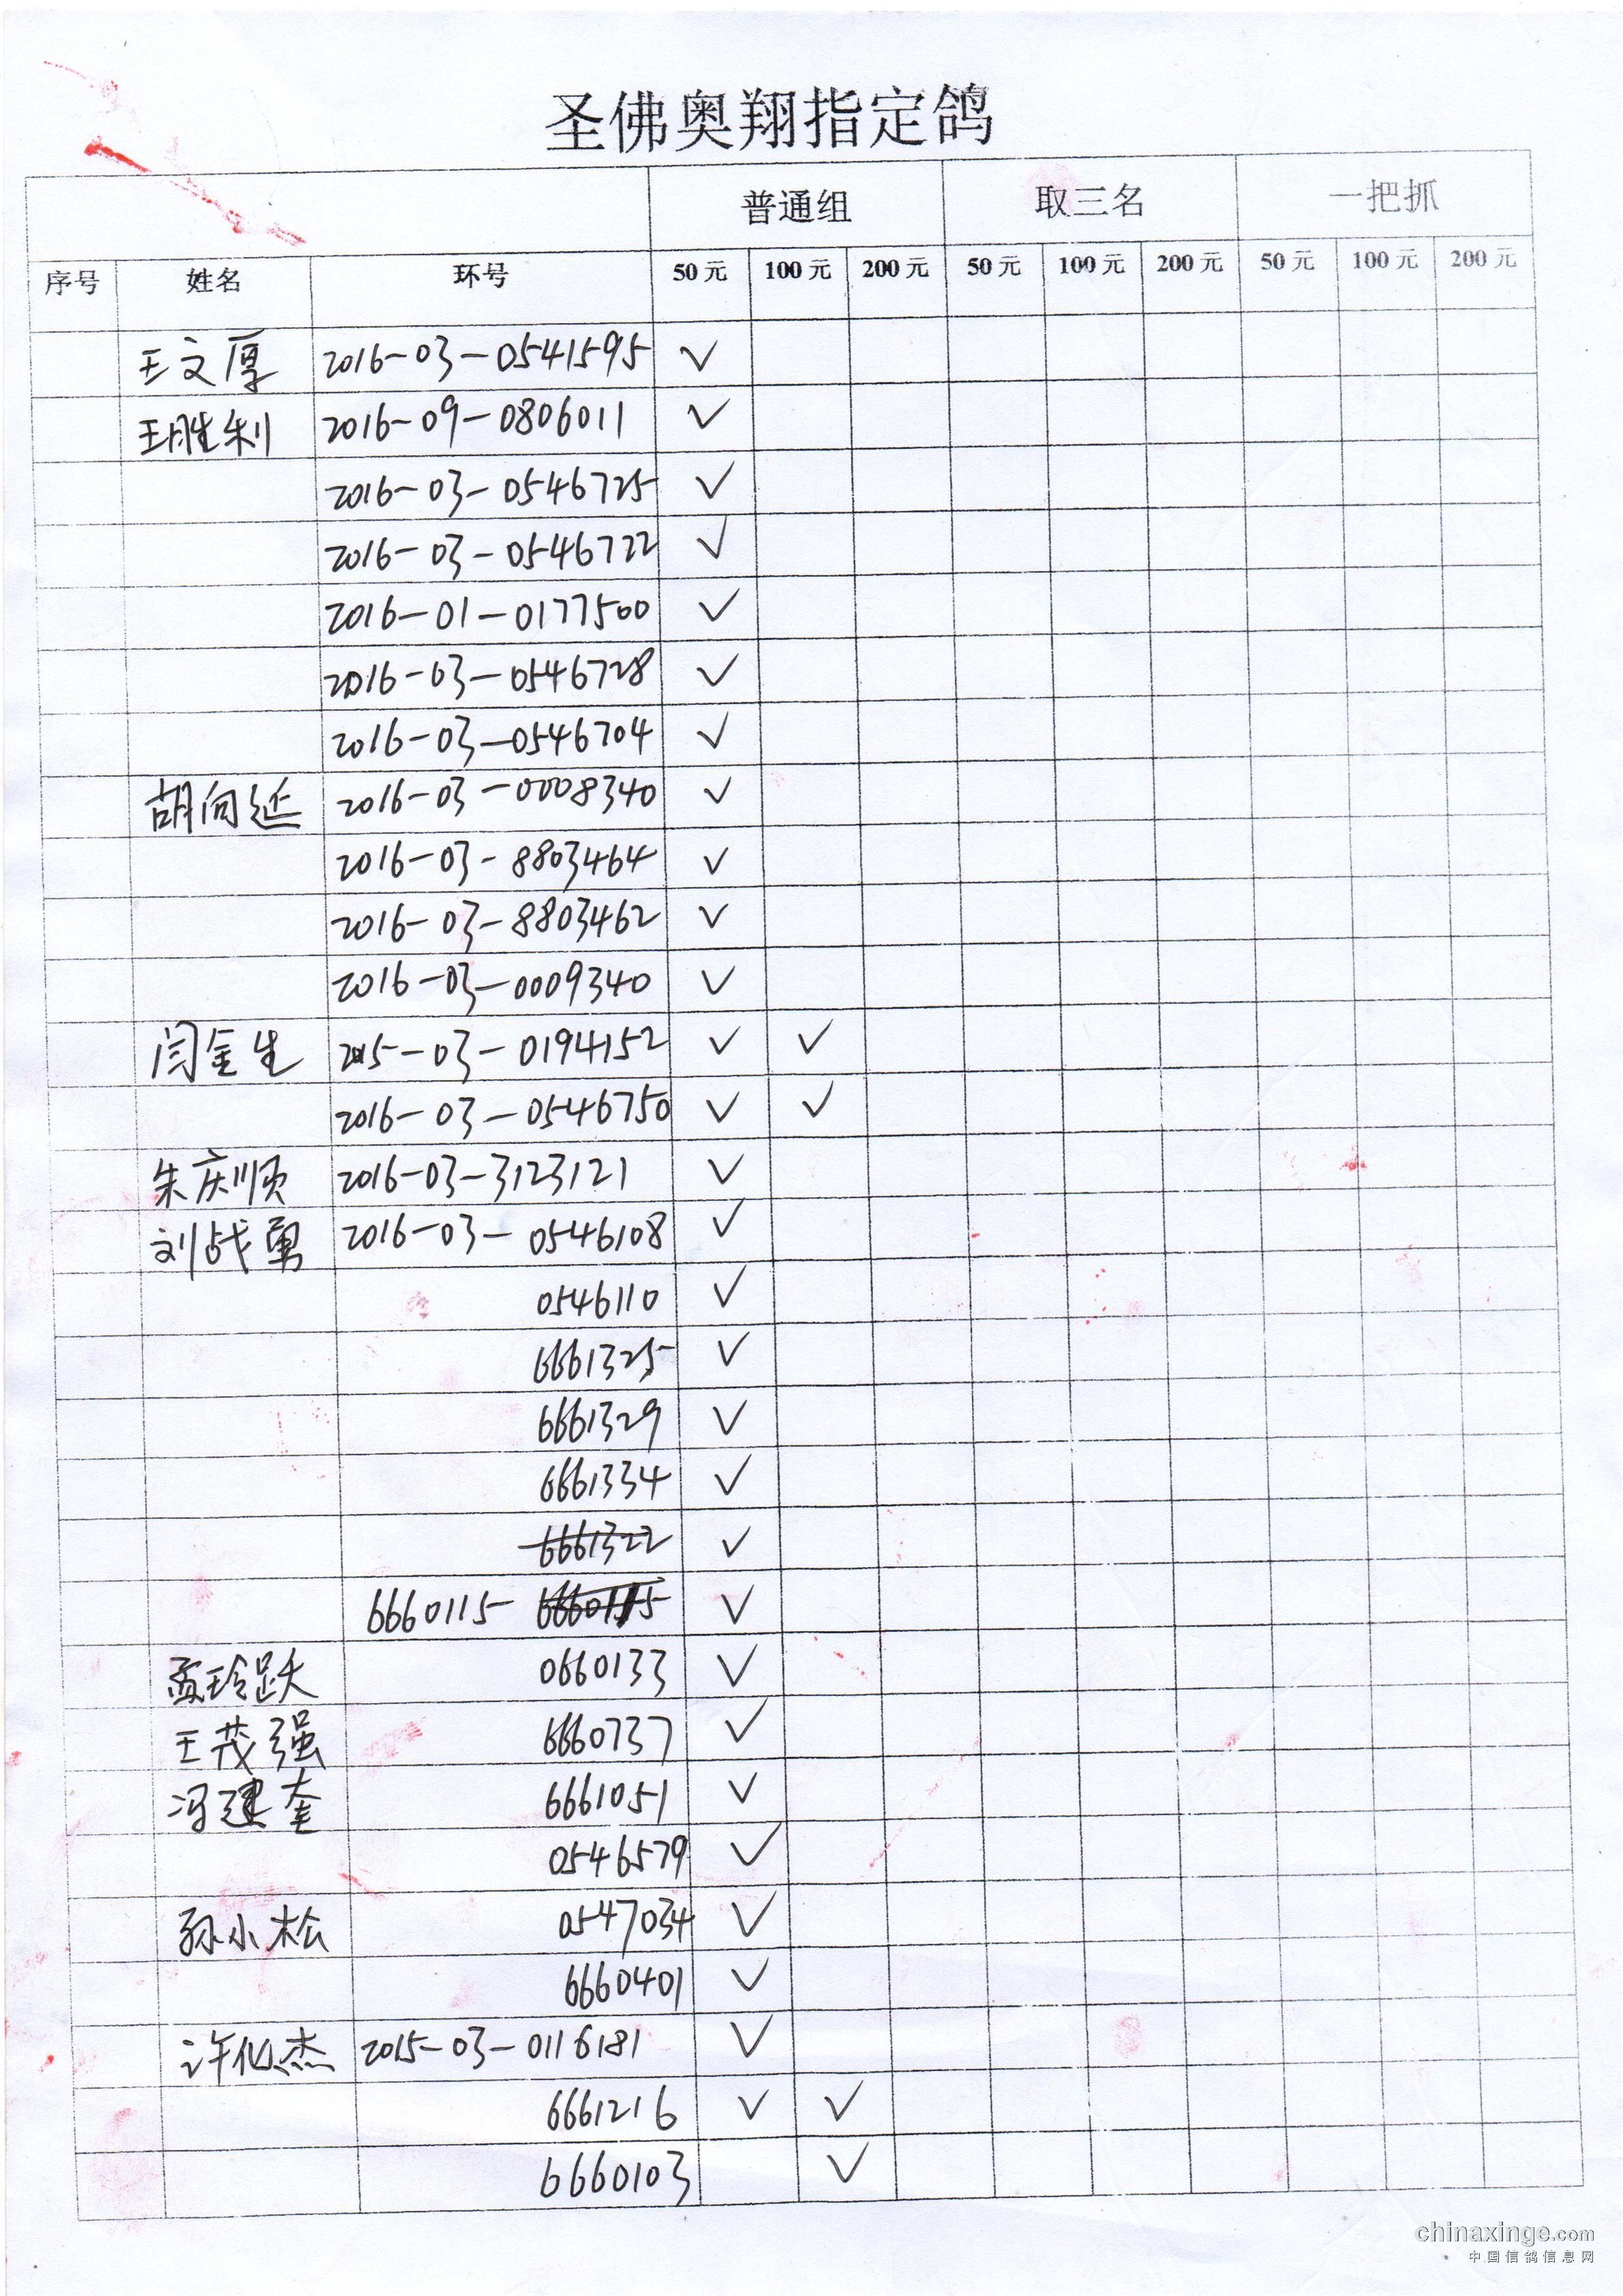 圣佛奥翔指定鸽
普通组 取三名 一把抓
序号 姓名 环号 50元 100元 200元 50元 100元 200元 50元 100元 200元
王文厚 2016-03-0541595 ✓
王胜利 2016-09-0806011 ✓
2016-03-0546725 ✓
2016-03-0546722 ✓
2016-01-0177500 ✓
2016-03-0546728 ✓
2016-03-0546704 ✓
胡向延 2016-03-0008340 ✓
2016-03-8803464 ✓
2016-03-8803462 ✓
2016-03-0009340 ✓
闫金生 2015-03-0194152 ✓ ✓
2016-03-0546750 ✓ ✓
朱庆顺 2016-03-3123121 ✓
刘战勇 2016-03-0546108 ✓
0546110 ✓
6661325 ✓
6661329 ✓
6661334 ✓
6661322 ✓
6660115- 6660115 ✓
孟玲跃 0660133 ✓
王茂强 6660737 ✓
冯建奎 6661051 ✓
0546579 ✓
孙小松 0547034 ✓
6660401 ✓
许化杰 2015-03-0116181 ✓
6661216 ✓ ✓
6660103 ✓
chinaxinge.com
中国信鸽信息网